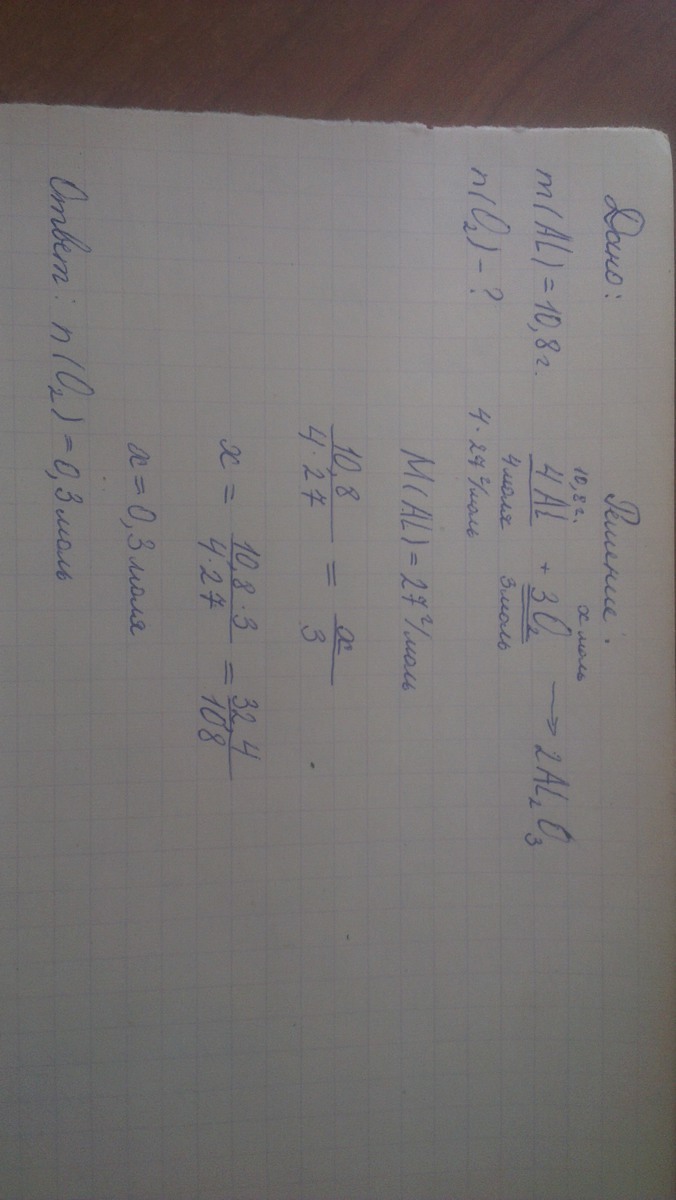 Дано:
m(AL) = 10,8 г.
n(O₂) - ?
Решение:
10,8 г. x моль
4Al + 3O₂ → 2AL₂O₃
4 моля 3 моль
4·27 г/моль
M(AL) = 27 г/моль
10,8 / 4·27 = x / 3
x = 10,8·3 / 4·27 = 32,4 / 108
x = 0,3 моля
Ответ: n(O₂) = 0,3 моль